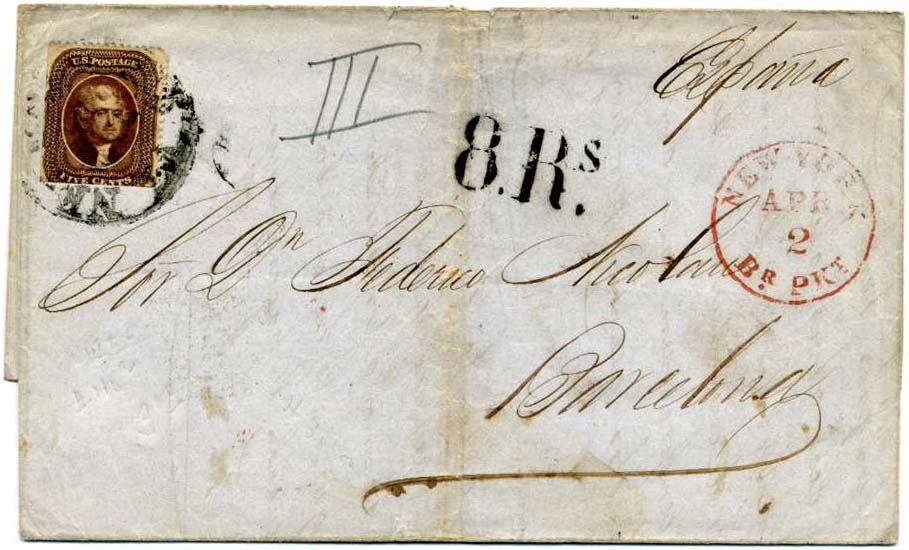 U.S. POSTAGE
FIVE CENTS
III
España
8.Rs.
NEW YORK
APR
2
BR. PKT
Sor Dn Federico Nicolau
Barcelona